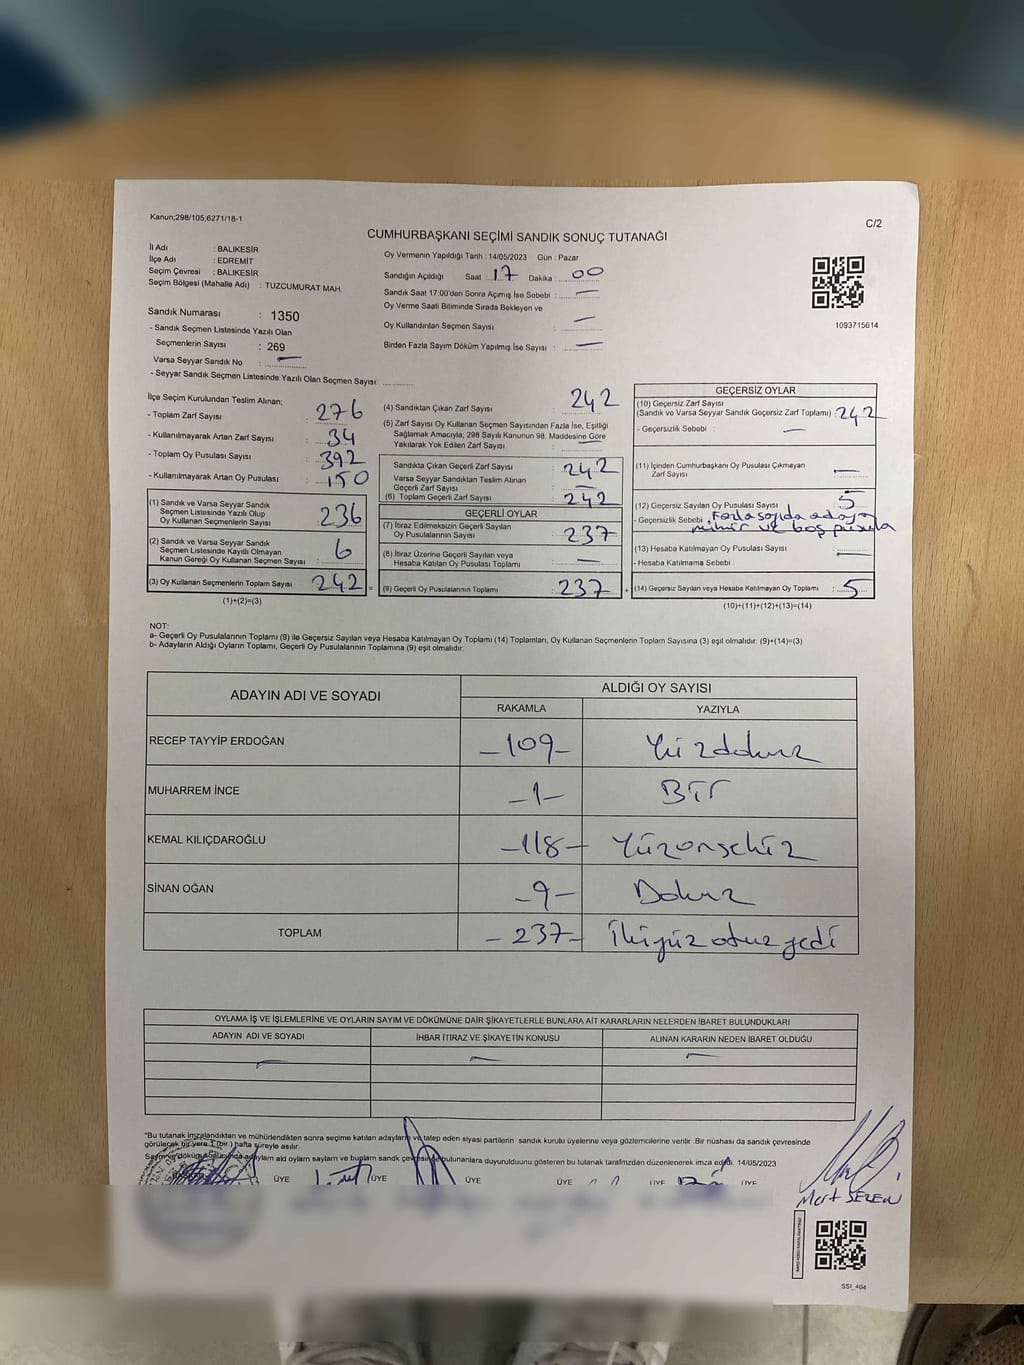 Kanun;298/105;6271/18-1
C/2
CUMHURBAŞKANI SEÇİMİ SANDIK SONUÇ TUTANAĞI
İl Adı : BALIKESİR
İlçe Adı : EDREMİT
Seçim Çevresi : BALIKESİR
Seçim Bölgesi (Mahalle Adı) : TUZCUMURAT MAH.
Sandık Numarası : 1350
- Sandık Seçmen Listesinde Yazılı Olan
Seçmenlerin Sayısı : 269
Varsa Seyyar Sandık No : —
- Seyyar Sandık Seçmen Listesinde Yazılı Olan Seçmen Sayısı : ............
Oy Vermenin Yapıldığı Tarih : 14/05/2023 Gün : Pazar
Sandığın Açıldığı Saat : 17 Dakika : 00
Sandık Saat 17:00'den Sonra Açımış İse Sebebi : —
Oy Verme Saati Bitiminde Sırada Bekleyen ve
Oy Kullandırılan Seçmen Sayısı : —
Birden Fazla Sayım Döküm Yapılmış İse Sayısı : —
1093715614
İlçe Seçim Kurulundan Teslim Alınan;
- Toplam Zarf Sayısı : 276
- Kullanılmayarak Artan Zarf Sayısı : 34
- Toplam Oy Pusulası Sayısı : 392
- Kullanılmayarak Artan Oy Pusulası : 150
(1) Sandık ve Varsa Seyyar Sandık
Seçmen Listesinde Yazılı Olup
Oy Kullanan Seçmenlerin Sayısı : 236
(2) Sandık ve Varsa Seyyar Sandık
Seçmen Listesinde Kayıtlı Olmayan
Kanun Gereği Oy Kullanan Seçmen Sayısı : 6
(3) Oy Kullanan Seçmenlerin Toplam Sayısı : 242 =
(1)+(2)=(3)
(4) Sandıktan Çıkan Zarf Sayısı : 242
(5) Zarf Sayısı Oy Kullanan Seçmen Sayısından Fazla İse, Eşitliği
Sağlamak Amacıyla; 298 Sayılı Kanunun 98. Maddesine Göre
Yakılarak Yok Edilen Zarf Sayısı : —
Sandıkta Çıkan Geçerli Zarf Sayısı : 242
Varsa Seyyar Sandıktan Teslim Alınan
Geçerli Zarf Sayısı : —
(6) Toplam Geçerli Zarf Sayısı : 242
GEÇERLİ OYLAR
(7) İtiraz Edilmeksizin Geçerli Sayılan
Oy Pusulasının Sayısı : 237
(8) İtiraz Üzerine Geçerli Sayılan veya
Hesaba Katılan Oy Pusulası Toplamı : —
(9) Geçerli Oy Pusulalarının Toplamı : 237 +
GEÇERSİZ OYLAR
(10) Geçersiz Zarf Sayısı
(Sandık ve Varsa Seyyar Sandık Geçersiz Zarf Toplamı) : 242
- Geçersizlik Sebebi : —
(11) İçinden Cumhurbaşkanı Oy Pusulası Çıkmayan
Zarf Sayısı : —
(12) Geçersiz Sayılan Oy Pusulası Sayısı : 5
- Geçersizlik Sebebi : Fazla sayıda adaya
mühür ve boş pusula
(13) Hesaba Katılmayan Oy Pusulası Sayısı : —
- Hesaba Katılmama Sebebi :
(14) Geçersiz Sayılan veya Hesaba Katılmayan Oy Toplamı : 5
(10)+(11)+(12)+(13)=(14)
NOT:
a- Geçerli Oy Pusulalarının Toplamı (9) ile Geçersiz Sayılan veya Hesaba Katılmayan Oy Toplamı (14) Toplamları, Oy Kullanan Seçmenlerin Toplam Sayısına (3) eşit olmalıdır. (9)+(14)=(3)
b- Adayların Aldığı Oyların Toplamı, Geçerli Oy Pusulalarının Toplamına (9) eşit olmalıdır.
ADAYIN ADI VE SOYADI ALDIĞI OY SAYISI
RAKAMLA YAZIYLA
RECEP TAYYİP ERDOĞAN –109– Yüzdokuz
MUHARREM İNCE –1– Bir
KEMAL KILIÇDAROĞLU –118– Yüzonsekiz
SİNAN OĞAN –9– Dokuz
TOPLAM –237– İkiyüzotuzyedi
OYLAMA İŞ VE İŞLEMLERİNE VE OYLARIN SAYIM VE DÖKÜMÜNE DAİR ŞİKAYETLERLE BUNLARA AİT KARARLARIN NELERDEN İBARET BULUNDUKLARI
ADAYIN ADI VE SOYADI İHBAR İTİRAZ VE ŞİKAYETİN KONUSU ALINAN KARARIN NEDEN İBARET OLDUĞU
— — —
"Bu tutanak imzalandıktan ve mühürlendikten sonra seçime katılan adayların ve talep eden siyasi partilerin sandık kurulu üyelerine veya gözlemcilerine verilir .Bir nüshası da sandık çevresinde
görülecek bir yere 1 (bir ) hafta süreyle asılır.
14/05/2023
ÜYE ÜYE ÜYE ÜYE ÜYE ÜYE
Mert SEZEN
SSI_404